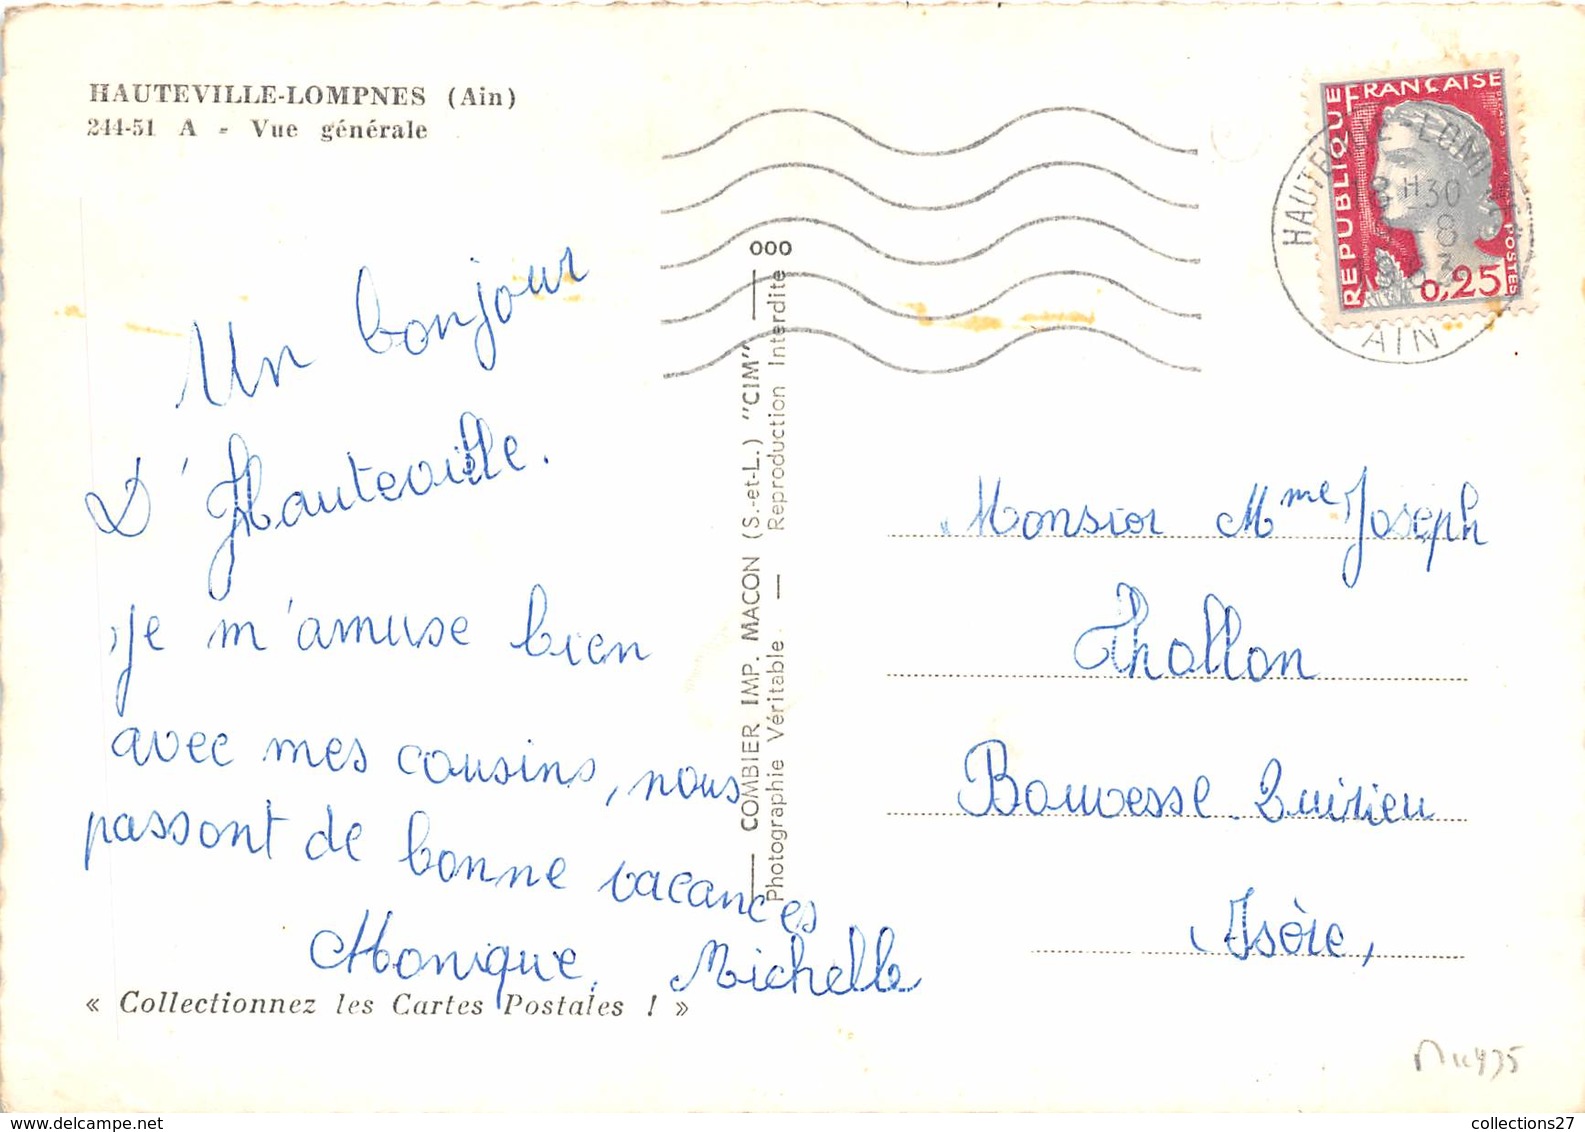 HAUTEVILLE-LOMPNES (Ain)
244-51 A - Vue générale
Un bonjour
D'Hauteville.
Je m'amuse bien
avec mes cousins, nous
passont de bonne vacances
Monique, Michelle
« Collectionnez les Cartes Postales ! »
COMBIER IMP. MACON (S.-et-L.) "CIM" — 000
Photographie Véritable — Reproduction Interdite
REPUBLIQUE FRANÇAISE
POSTES
0,25
18 H 30
8
AIN
Monsior Mme Joseph
Thollon
Bouvesse. Quirieu
Isère,
collections27